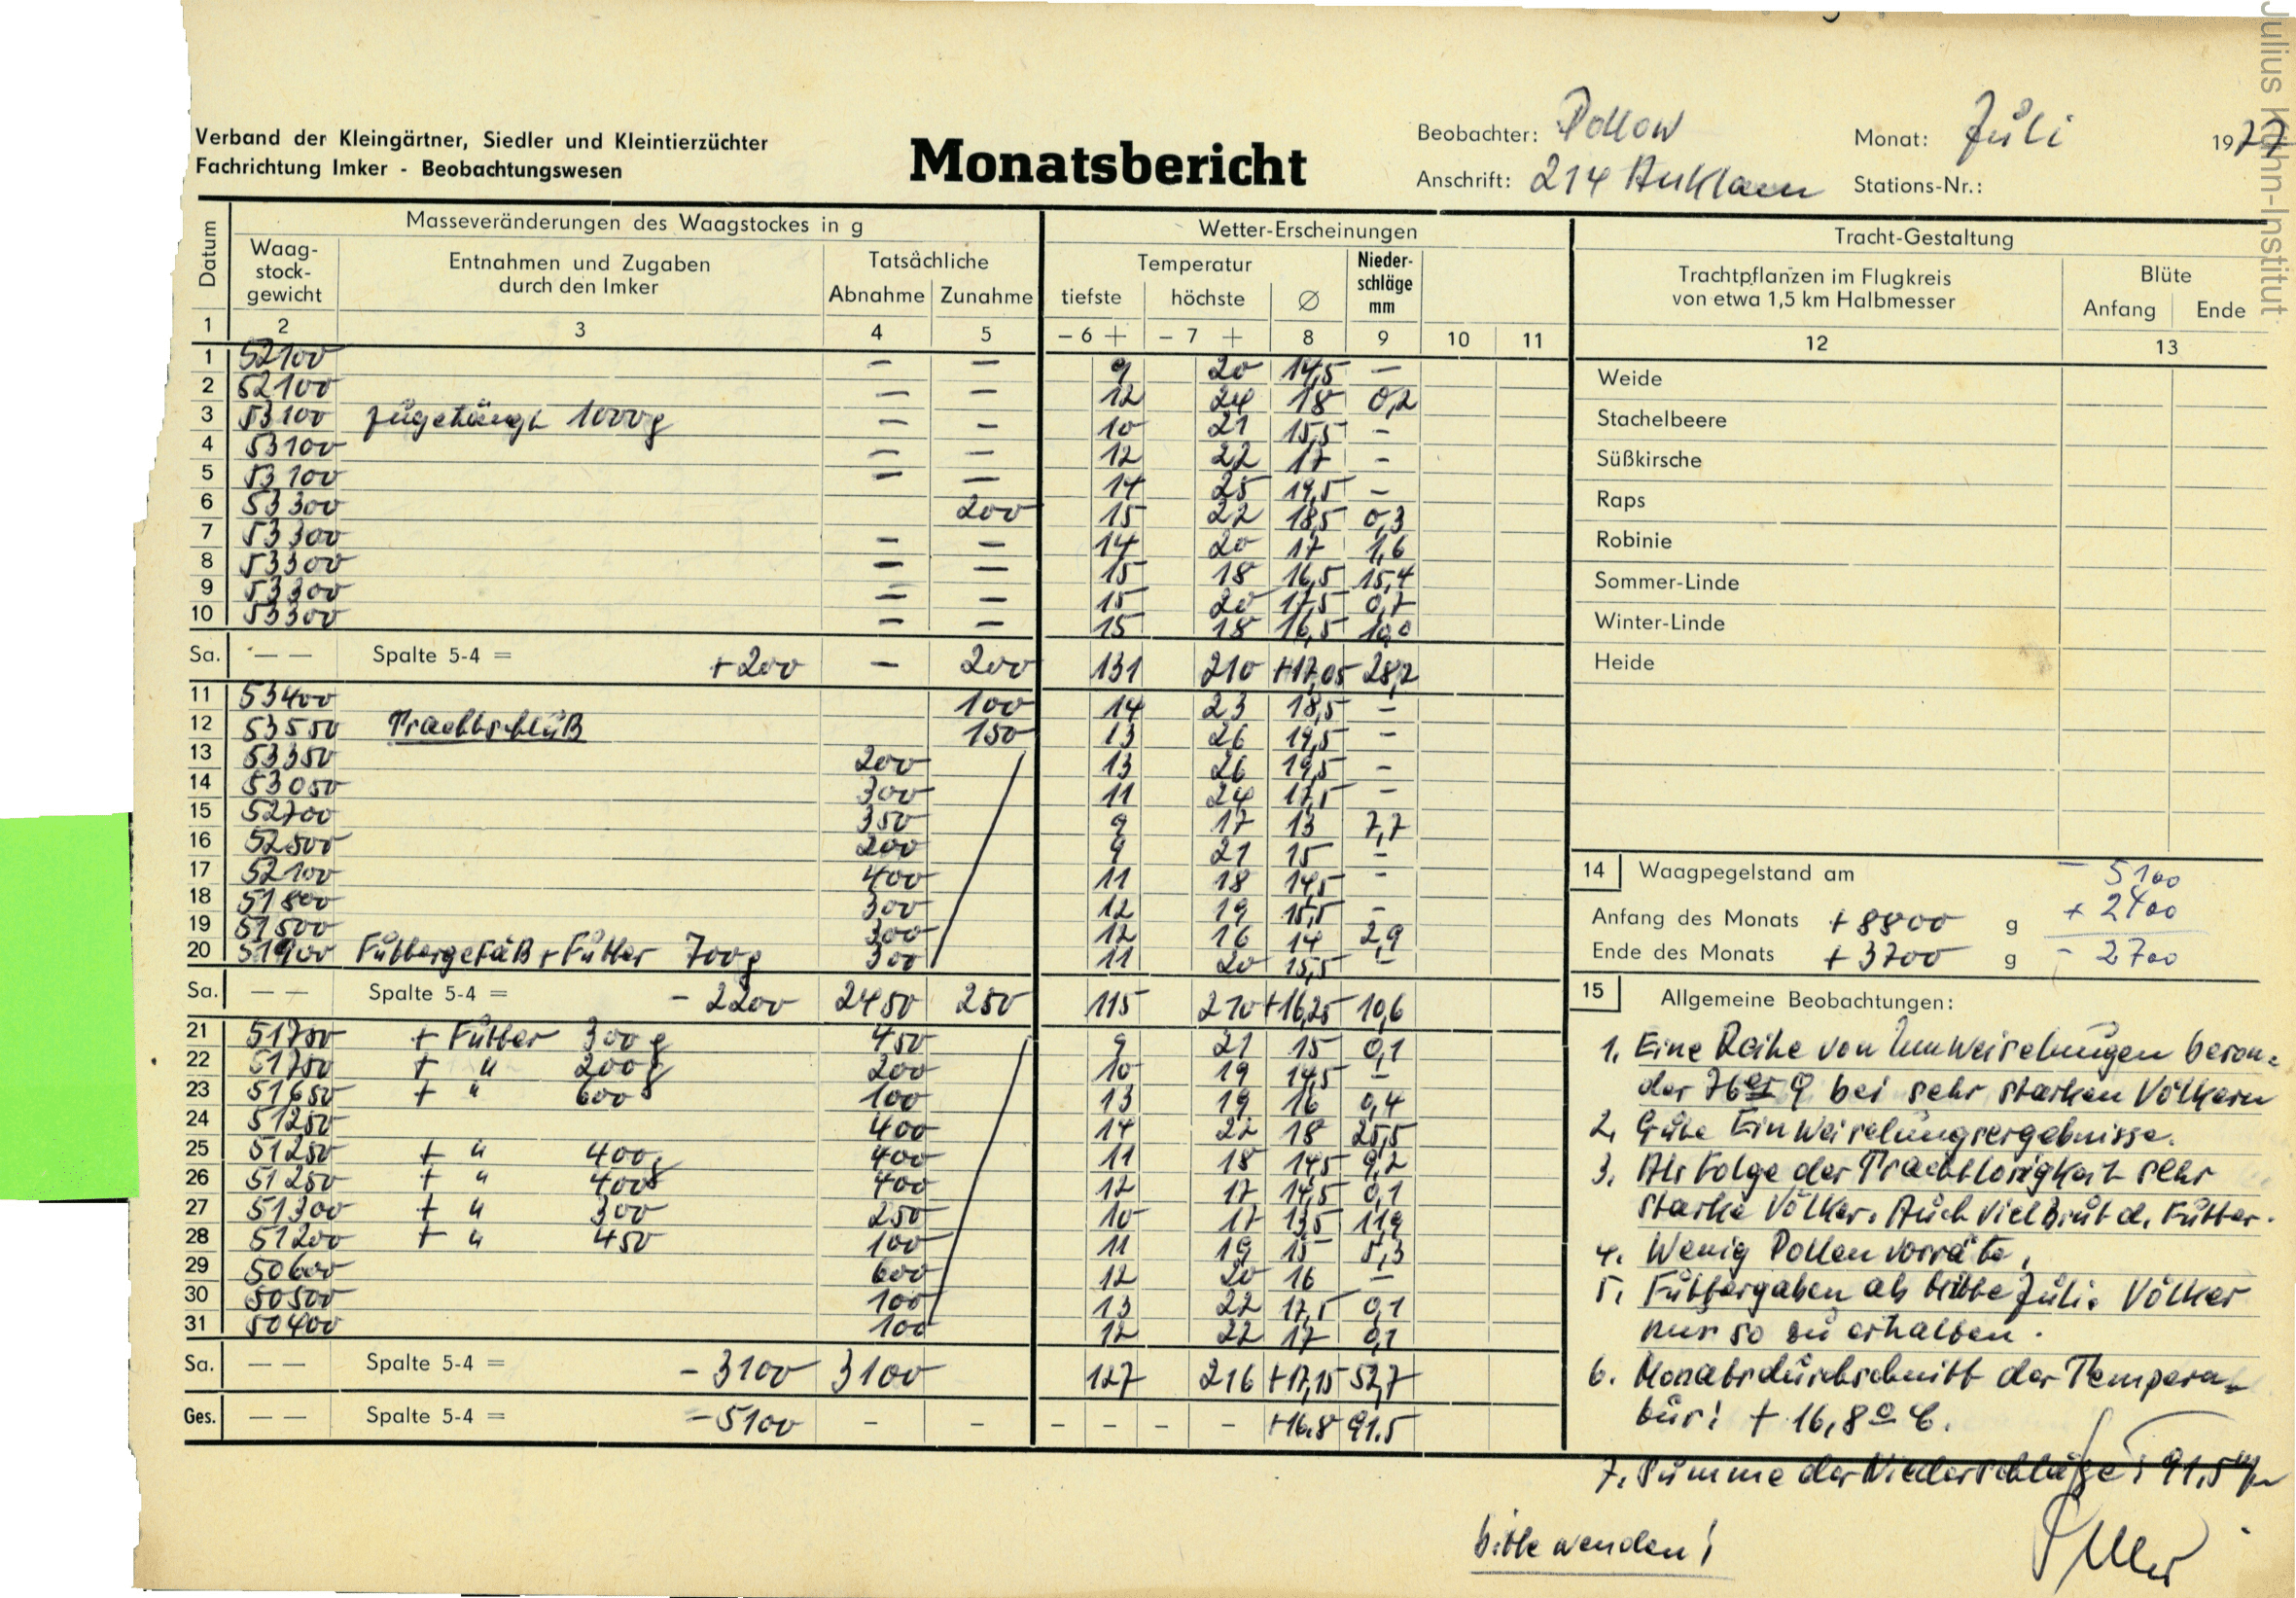 Julius Kühn-Institut
Verband der Kleingärtner, Siedler und Kleintierzüchter
Fachrichtung Imker - Beobachtungswesen
Monatsbericht
Beobachter: Pollow
Monat: Juli 1977
Anschrift: 214 Anklam
Stations-Nr.:
Datum
Masseveränderungen des Waagstockes in g
Wetter-Erscheinungen
Tracht-Gestaltung
Waag-
stock-
gewicht
Entnahmen und Zugaben
durch den Imker
Tatsächliche
Abnahme Zunahme
Temperatur
tiefste höchste ∅
Nieder-
schläge
mm
Trachtpflanzen im Flugkreis
von etwa 1,5 km Halbmesser
Blüte
Anfang Ende
1 2 3 4 5 - 6 + - 7 + 8 9 10 11 12 13
1 52100 — — 9 20 14,5 —
2 52100 — — 12 24 18 0,2
3 53100 zugehängt 1000g — — 10 21 15,5 —
4 53100 — — 12 22 17 —
5 53100 — — 14 25 19,5 —
6 53300 200 15 22 18,5 0,3
7 53300 — — 14 20 17 1,6
8 53300 — — 15 18 16,5 15,4
9 53300 — — 15 20 17,5 0,7
10 53300 — — 15 18 16,5 10,0
Sa. — — Spalte 5-4 = +200 — 200 131 210 +17,05 28,2
11 53400 100 14 23 18,5 —
12 53550 Trachtschluß 150 13 26 19,5 —
13 53350 200 13 26 19,5 —
14 53050 300 11 24 17,5 —
15 52700 350 9 17 13 7,7
16 52500 200 9 21 15 —
17 52100 400 11 18 14,5 —
18 51800 300 12 19 15,5 —
19 51500 300 12 16 14 2,9
20 51900 Futtergefäß + Futter 700g 300 11 20 15,5 —
Sa. — — Spalte 5-4 = - 2200 2450 250 115 210 +16,25 10,6
21 51750 + Futter 300 g 450 9 21 15 0,1
22 51750 + " 200g 200 10 19 14,5 —
23 51650 + " 600 100 13 19 16 0,4
24 51250 400 14 22 18 25,5
25 51250 + " 400g 400 11 18 14,5 9,2
26 51250 + " 400g 400 12 17 14,5 0,1
27 51300 + " 300 250 10 17 13,5 11,9
28 51200 + " 450 100 11 19 15 5,3
29 50600 600 12 20 16 —
30 50500 100 13 22 17,5 0,1
31 50400 100 12 22 17 0,1
Sa. — — Spalte 5-4 = - 3100 3100 127 216 +17,15 52,7
Ges. — — Spalte 5-4 = - 5100 - - - - - - +16.8 91.5
Weide
Stachelbeere
Süßkirsche
Raps
Robinie
Sommer-Linde
Winter-Linde
Heide
14 Waagpegelstand am
Anfang des Monats + 8800 g
Ende des Monats + 3700 g
- 5100
+ 2400
- 2700
15 Allgemeine Beobachtungen:
1. Eine Reihe von Umweiselungen beson=
der 76er ♀ bei sehr starken Völkern
2. Gute Einweiselungsergebnisse.
3. Als Folge der Trachtlosigkeit sehr
starke Völker. Auch viel Brut d. Futter.
4. Wenig Pollenvorräte.
5. Futtergaben ab Mitte Juli. Völker
nur so zu erhalten.
6. Monatsdurchschnitt der Tempera=
tur: + 16,8° C.
7. Summe der Niederschläge: 91,5 mm
bitte wenden!